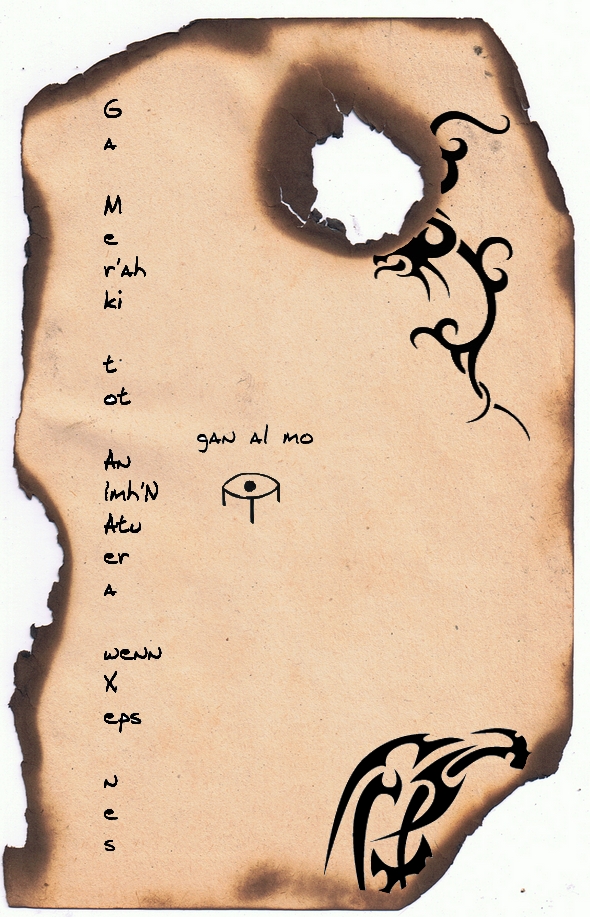 G
A
M
e
r'Ah
ki
t
ot
AN
lmh'N
Atu
er
A
wenn
X
eps
N
e
s
gAN Al mo